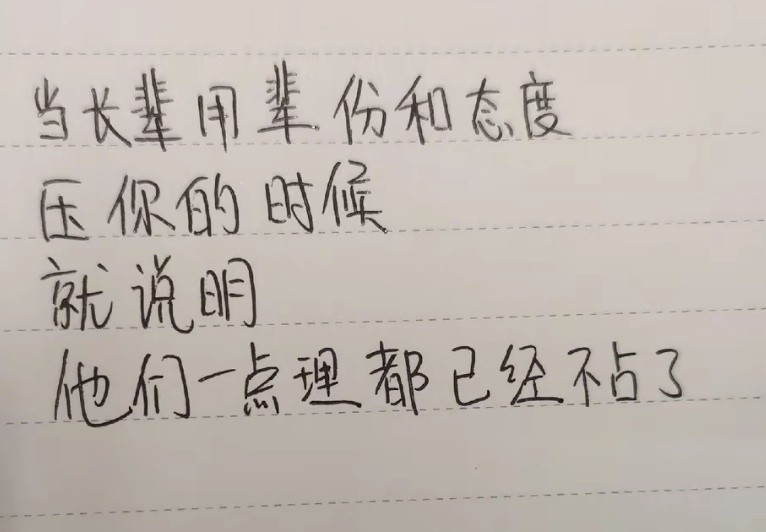 当长辈用辈份和态度
压你的时候
就说明
他们一点理都已经不占了